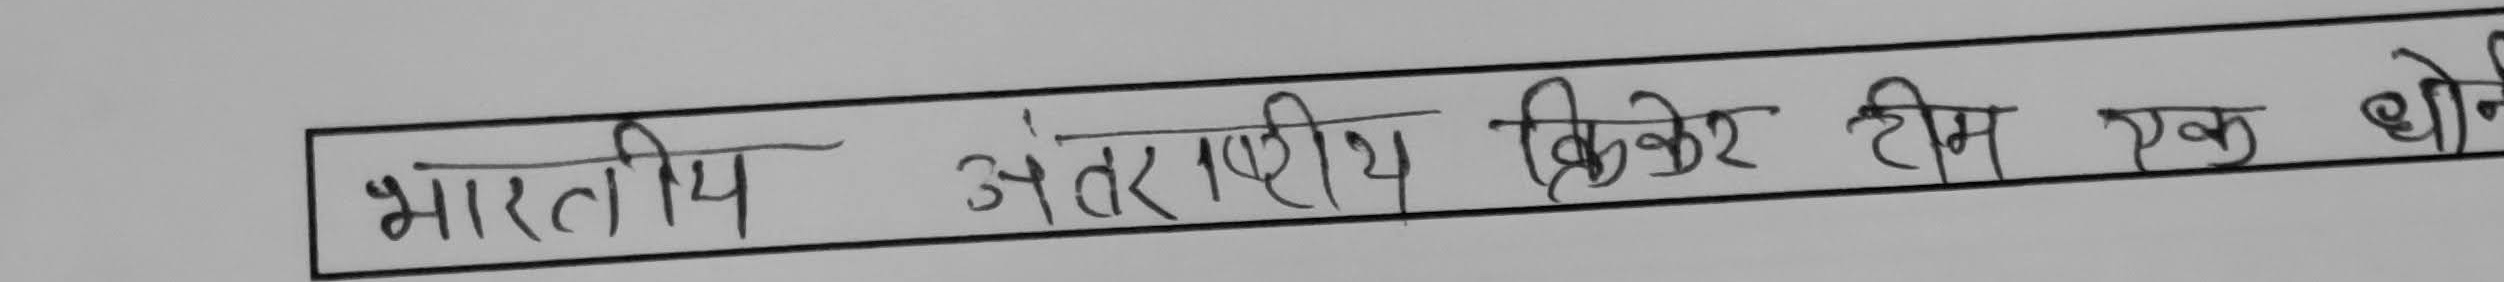 भारतीय अंतरराष्ट्रीय क्रिकेट टीम एक